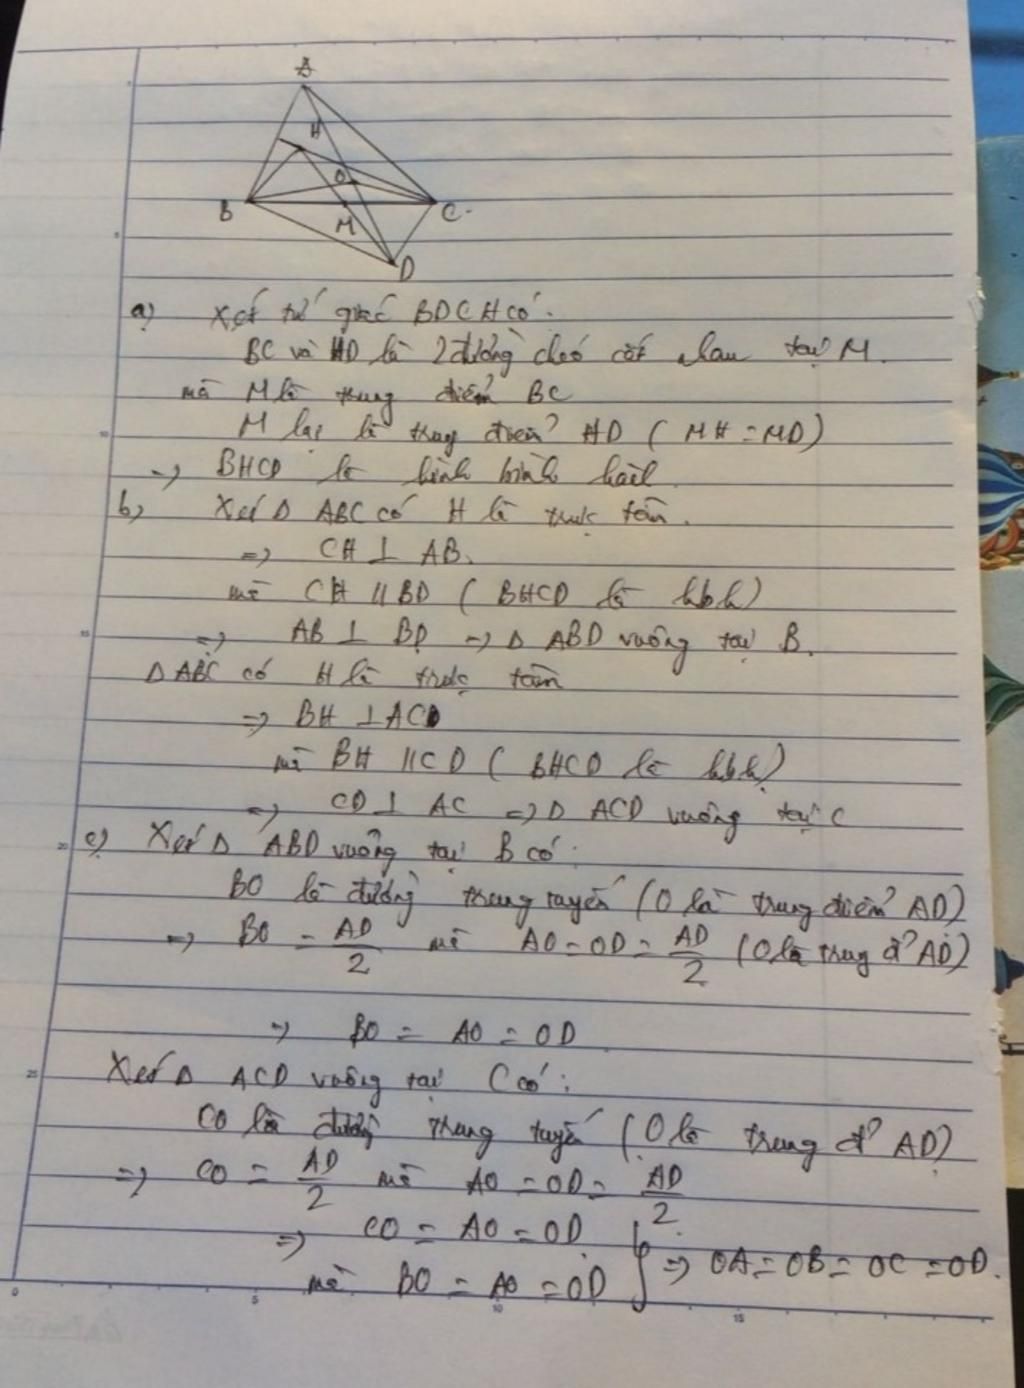 A
H
O
B
C
M
D
a) Xét tứ giác BDCH có:
BC và HD là 2 đường chéo cắt nhau tại M.
mà M là trung điểm BC
M lại là trung điểm HD (MH = MD)
=> BHCD là hình bình hành
b) Xét Δ ABC có H là trực tâm.
=> CH ⊥ AB.
mà CH // BD (BHCD là hbh)
=> AB ⊥ BD => Δ ABD vuông tại B.
Δ ABC có H là trực tâm
=> BH ⊥ AC
mà BH // CD (BHCD là hbh)
=> CD ⊥ AC => Δ ACD vuông tại C
c) Xét Δ ABD vuông tại B có:
BO là đường trung tuyến (O là trung điểm AD)
=> BO = AD/2 mà AO = OD = AD/2 (O là trung đ' AD)
=> BO = AO = OD
Xét Δ ACD vuông tại C có:
CO là đường trung tuyến (O là trung đ' AD)
=> CO = AD/2 mà AO = OD = AD/2
=> CO = AO = OD
mà BO = AO = OD } => OA = OB = OC = OD.